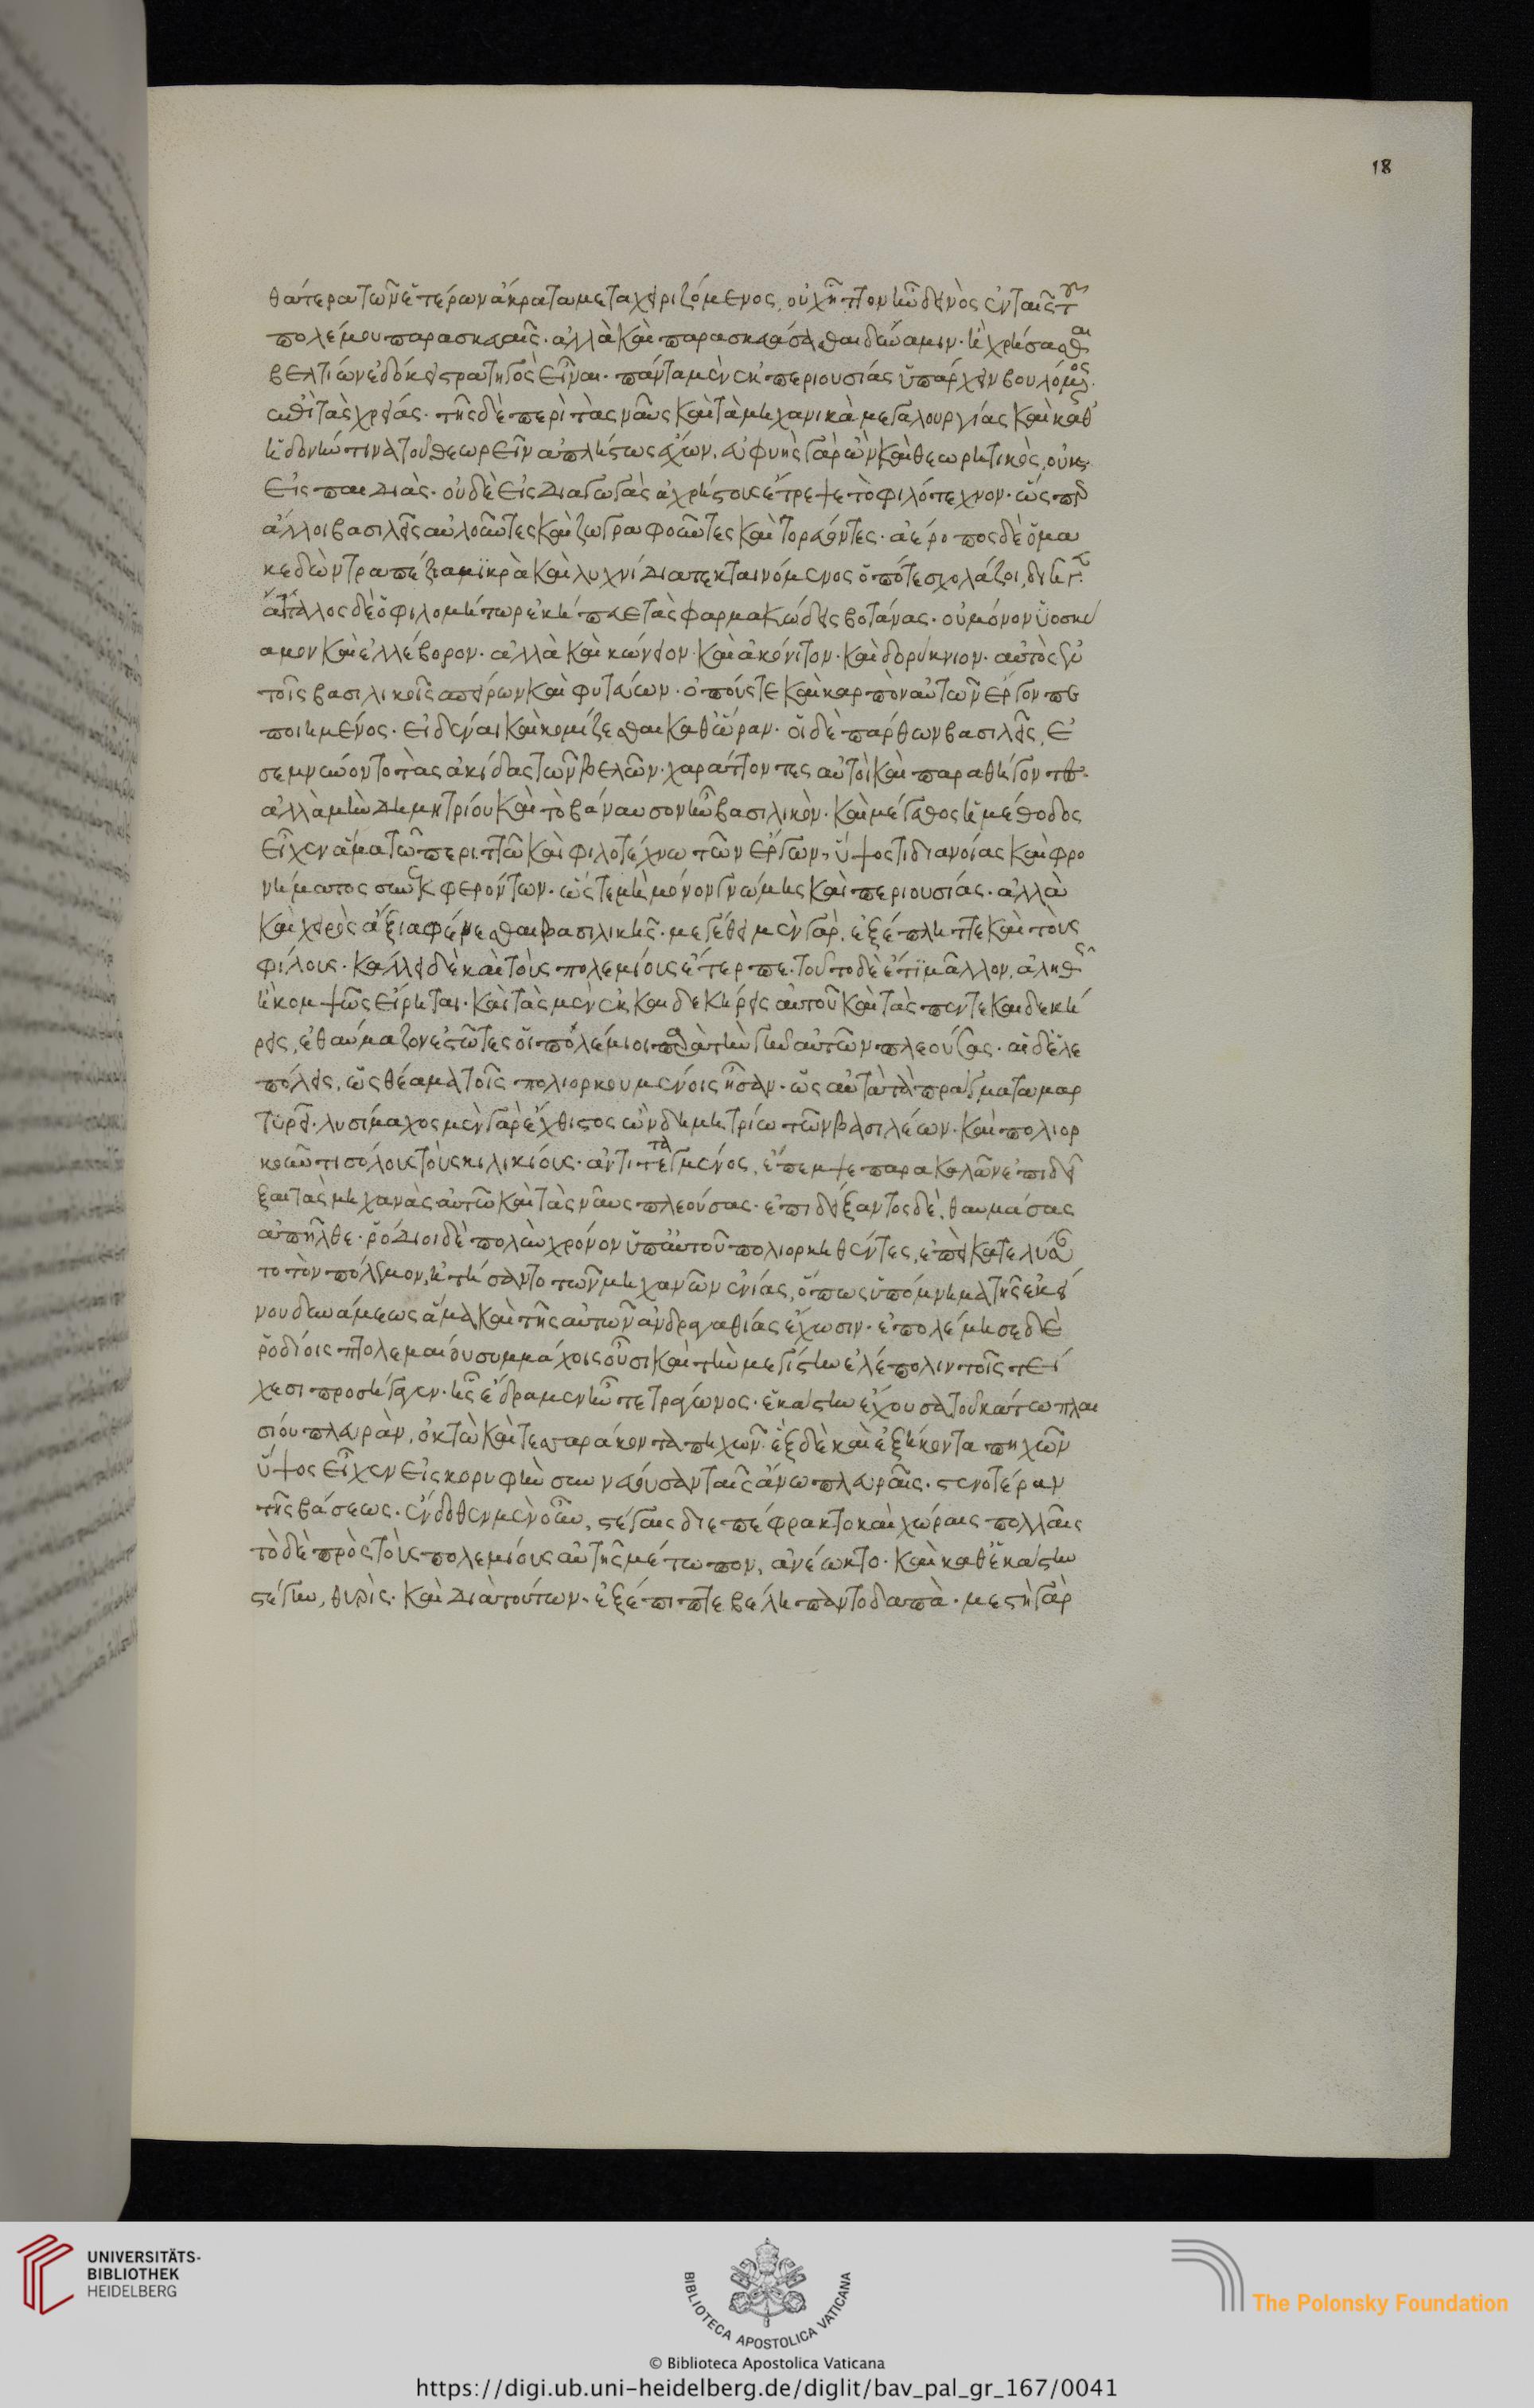 18
θάτερα τῶν ἑτέρων ἄκρατα μεταχειριζόμενος, οὐχ ἧττον ἦν δεινὸς ἐν ταῖς τοῦ
πολέμου παρασκευαῖς· ἀλλὰ καὶ παρασκευάσασθαι δύναμιν· ἢ χρήσασθαι
βελτίων ἐδόκει στρατηγὸς εἶναι· πάντα μὲν ἐκ περιουσίας ὑπάρχειν βουλόμενος·
ἐπὶ τὰς χρείας· τῆς δὲ περὶ τὰς ναῦς καὶ τὰ μηχανικὰ μεγαλουργίας καὶ καθ'
ἡδονήν τινα τοῦ θεωρεῖν ἀπλήστως ἔχων. εὐφυὴς γὰρ ὢν καὶ θεωρητικὸς, οὐκ
εἰς παιδιὰς· οὐδὲ εἰς διαγωγὰς ἀχρήστους ἔτρεψε τὸ φιλότεχνον· ὥσπερ
ἄλλοι βασιλεῖς αὐλοῦντες καὶ ζωγραφοῦντες καὶ τορεύοντες· ἀέροπος δὲ ὁ μα
κεδὼν τραπέζια μικρὰ καὶ λυχνίδια τεκταινόμενος ὁπότε σχολάζοι, διῆγε.
ἄτταλος δὲ ὁ φιλομήτωρ ἐκήπευε τὰς φαρμακώδεις βοτάνας· οὐ μόνον ὑοσκύ
αμον καὶ ἐλλέβορον· ἀλλὰ καὶ κώνειον· καὶ ἀκόνιτον· καὶ δορύκνιον· αὐτὸς ἐν
τοῖς βασιλικοῖς σπείρων καὶ φυτεύων· ὀπούς τε καὶ καρπὸν αὐτῶν ἔργον πε
ποιημένος· εἰδέναι καὶ κομίζεσθαι καθ' ὥραν· οἱ δὲ πάρθων βασιλεῖς, ἐ
σεμνύνοντο τὰς ἀκίδας τῶν βελῶν· χαράττοντες αὐτοὶ καὶ παραθήγοντες·
ἀλλὰ μὴν δημητρίου καὶ τὸ βάναυσον ἦν βασιλικὸν· καὶ μέγεθος ἡ μέθοδος
εἶχεν ἅμα τῷ περιττῷ καὶ φιλοτέχνῳ τῶν ἔργων, ὕψος τι διανοίας καὶ φρο
νήματος συνεκφερόντων· ὥστε μὴ μόνον γνώμης καὶ περιουσίας· ἀλλὰ
καὶ χειρὸς ἄξια φαίνεσθαι βασιλικῆς· μεγέθει μὲν γὰρ, ἐξέπληττε καὶ τοὺς
φίλους· κάλλει δὲ καὶ τοὺς πολεμίους ἔτερπε· τοῦτο δὲ ἔτι μᾶλλον, ἀληθῶς
ἢ κομψῶς εἴρηται· καὶ τὰς μὲν ἑκκαιδεκήρεις αὐτοῦ καὶ τὰς πεντεκαιδεκή
ρεις, ἐθαύμαζον ἑστῶτες οἱ πολέμιοι παρὰ τὴν γῆν αὐτῶν πλεούσας· αἱ δὲ ἑλε
πόλεις, ὡς θέαμα τοῖς πολιορκουμένοις ἦσαν· ὡς αὐτὰ τὰ πράγματα μαρ
τυρεῖ· λυσίμαχος μὲν γὰρ ἔχθιστος ὢν δημητρίῳ τῶν βασιλέων· καὶ πολιορ
κοῦντι σόλους τοὺς κιλικίους· ἀντιτεταγμένος, ἔπεμψε παρακαλῶν ἐπιδεῖ
ξαι τὰς μηχανὰς αὐτῷ καὶ τὰς ναῦς πλεούσας· ἐπιδείξαντος δὲ, θαυμάσας
ἀπῆλθε· ῥόδιοι δὲ πολὺν χρόνον ὑπ' αὐτοῦ πολιορκηθέντες, ἐπεὶ κατελύσαν
το τὸν πόλεμον, ᾐτήσαντο τῶν μηχανῶν ἐνίας, ὅπως ὑπόμνημα τῆς ἐκεί
νου δυνάμεως ἅμα καὶ τῆς αὐτῶν ἀνδραγαθίας ἔχωσιν· ἐπολέμησε δὲ
ῥοδίοις πτολεμαίου συμμάχοις οὖσι καὶ τὴν μεγίστην ἑλέπολιν τοῖς τεί
χεσι προσήγαγεν· ἧς ἕδρα μὲν ἦν τετράγωνος· ἑκάστην ἔχουσα τοῦ κάτω πλαι
σίου πλευρὰν, ὀκτὼ καὶ τεσσαράκοντα πηχῶν· ἓξ δὲ καὶ ἑξήκοντα πηχῶν
ὕψος εἶχεν εἰς κορυφὴν συννεύουσαν ταῖς ἄνω πλευραῖς· στενοτέραν
τῆς βάσεως· ἔνδοθεν μὲν οὖν, στέγαις διεπέφρακτο καὶ χώραις πολλαῖς
τὸ δὲ πρὸς τοὺς πολεμίους αὐτῆς μέτωπον, ἀνέῳκτο· καὶ καθ' ἑκάστην
στέγην, θυρὶς· καὶ διὰ τούτων· ἐξέπιπτε βέλη παντοδαπὰ· μεστὴ γὰρ
UNIVERSITÄTS-
BIBLIOTHEK
HEIDELBERG
BIBLIOTECA APOSTOLICA VATICANA
The Polonsky Foundation
© Biblioteca Apostolica Vaticana
https://digi.ub.uni-heidelberg.de/diglit/bav_pal_gr_167/0041